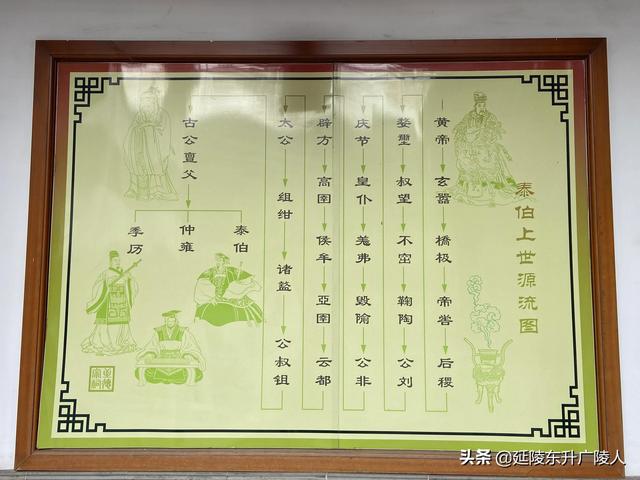 泰伯上世源流图
黄帝 玄嚣 橋极 帝喾 后稷
婺璽 叔望 不窋 鞠陶 公刘
庆节 皇仆 羗弗 毁隃 公非
辟方 高圉 侯牟 亞圉 云都
太公 组绀 诸盩 公叔钼
古公亶父
泰伯
仲雍
季历
头条 @延陵东升广陵人